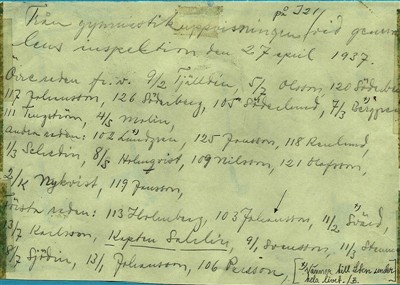 på I21/
Från gymnastikuppvisningen vid genera-
lens inspektion den 27 april 1937.
Övre raden fr. v. 9/2 Tjälldin, 5/7 Olsson, 120 Söderberg
117 Johansson, 126 Söderberg, 105 Söderlund, 7/3 Berggren
111 Tengström, 4/5 Molin,
Andra raden: 102 Lundgren, 125 Jonsson, 118 Renlund,
1/3 Schedin, 8/5 Holmqvist, 109 Nilsson, 121 Olofsson,
2/K Nykvist, 119 Jonsson,
Första raden: 113 Holmberg, 103 Johansson, 11/2 Svärd,
3/7 Karlsson, Kapten Sahlin, 9/1 Svensson, 11/3
8/7 Sjödin, 13/1 Johansson, 106 Persson, 1) Känner till dem under
hela livet.